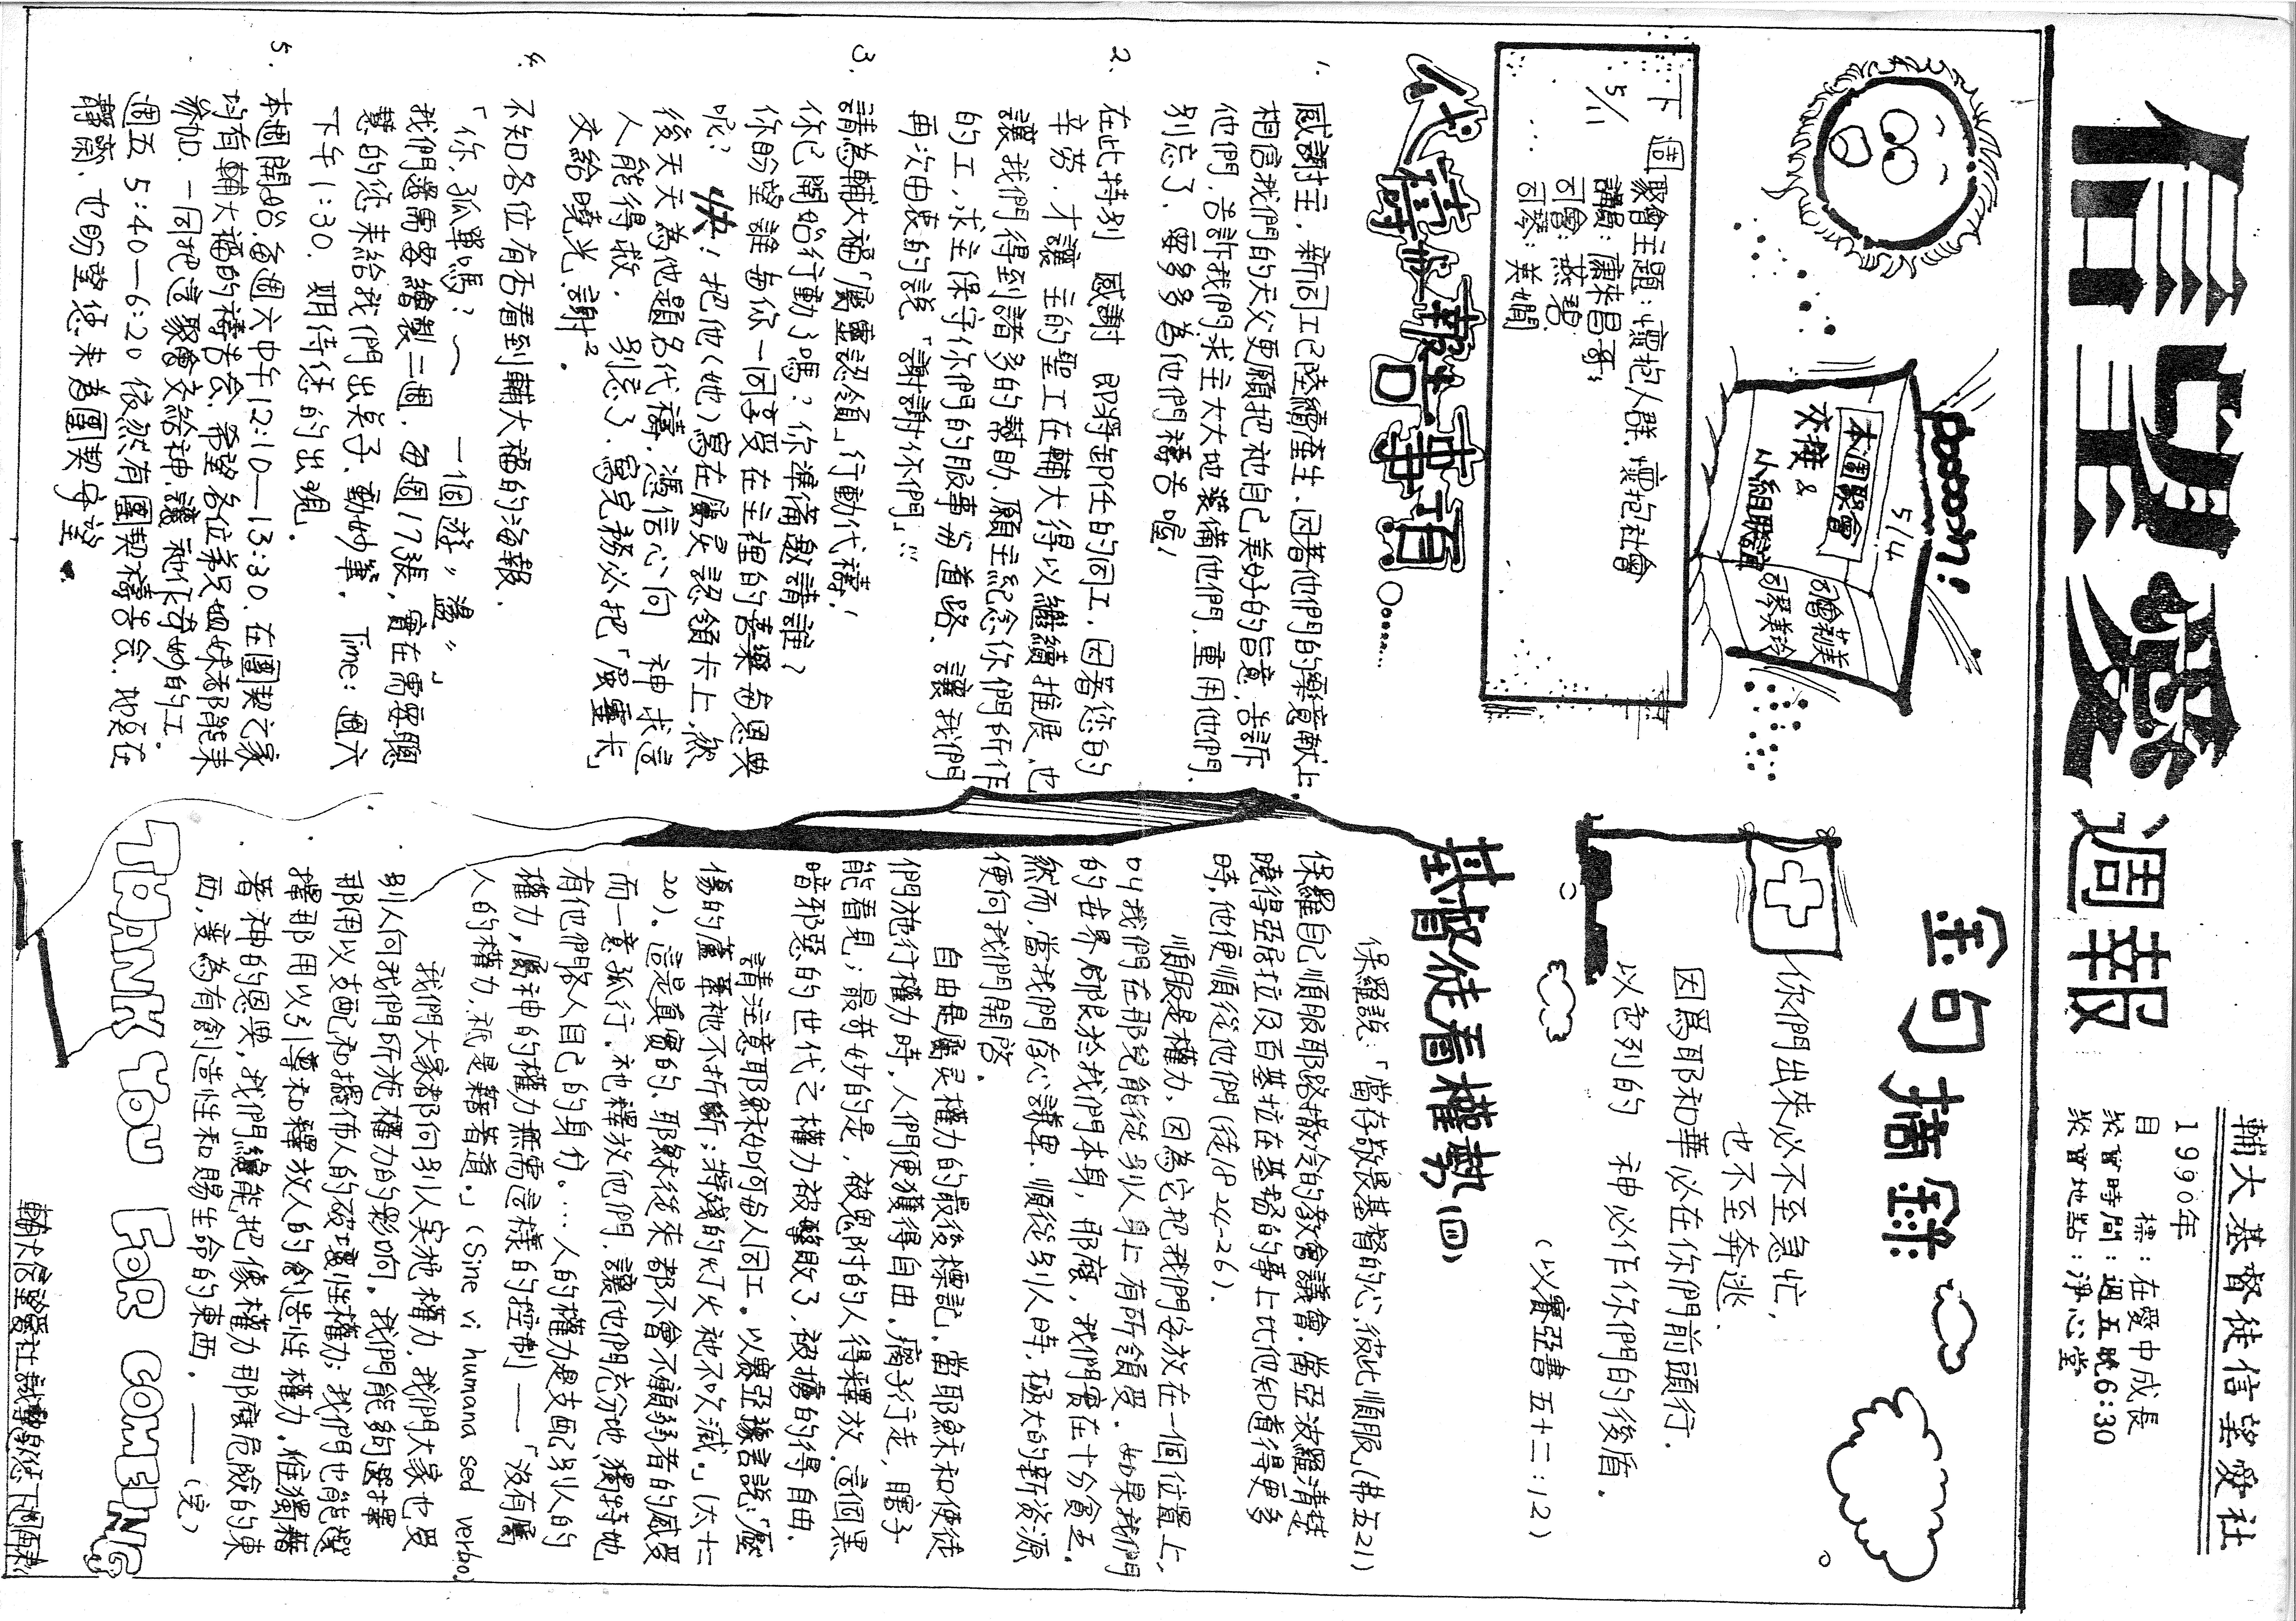 信望愛週報
輔大基督徒信望愛社
1990年
目標：在愛中成長
聚會時間：週五晚6:30
聚會地點：淨心堂
boooom!
5/4
本週聚會
交接 &
小組聯誼
司會莉美
司琴美玲
下週聚會主題：懷抱人群，懷抱社會
5/11
講員：康來昌哥
司會：燕碧
司琴：美嫺
代禱或報告事項
1. 感謝主，新同工已陸續產生，因著他們的樂意獻上，
相信我們的天父更願把祂自己美好的旨意，告訴
他們，告訴我們，求主大大地裝備他們，重用他們，
別忘了，要多多為他們禱告喔！
2. 在此特別 感謝 即將卸任的同工，因著您的
辛勞，才讓 主的聖工在輔大得以繼續推展，也
讓我們得到諸多的幫助，願主紀念你們所作
的工，求主保守你們的服事當道路，讓我們
再次由衷的說「謝謝你們」!!!
3. 請為輔大福「屬靈認領」行動代禱！
你已開始行動了嗎？你準備邀請誰？
你盼望誰與你一同享受在主裡的喜樂與恩典
呢？ 快！把他(她)寫在屬靈認領卡上，然
後天天為他題名代禱，憑信心向 神求這
人能得救， 別忘了，寫完務必把「屬靈卡」
交給曉光，謝²。
4. 不知各位有否看到輔大福的海報，
「你，孤單嗎？～ 一個“遊”盪“」
我們還需要繪製二個，每個173張，實在需要聰
慧的您來給我們出点子，動妙筆， Time：週六
下午1:30， 期待您的出現。
5. 本週開始，每週六中午12:10—13:30，在團契之家
均有輔大福的禱告會，希望各位弟兄姐妹都能來
參加，一同把這聚會交給神，讓祂作奇妙的工。
週五 5:40—6:20 依然有團契禱告會，地點在
靜默，也盼望您來為團契守望。
金句摘錄
你們出來必不至急忙，
也不至奔逃。
因為耶和華必在你們前頭行，
以色列的 神必作你們的後盾。
（以賽亞書 五十二：12）
基督徒看權勢(四)
保羅說：「當存敬畏基督的心，彼此順服」(弗五21)
保羅自己順服耶路撒冷的教會議會，當亞波羅清楚
曉得亞居拉及百基拉在基督的事上比他知道得更多
時，他便順從他們(徒18 24-26)。
順服是權力，因為它把我們安放在一個位置上，
叫我們在那兒能從別人身上有所領受。如果我們
的世界局限於我們本身，那麼，我們實在十分貧乏，
然而，當我們存心謙卑，順從別人時，極大的新資源
便向我們開啟。
自由是屬灵權力的最後標記，當耶穌和使徒
們施行權力時，人們便獲得自由，瘸子行走，瞎子
能看見；最奇妙的是，被鬼附的人得釋放，這個黑
暗邪惡的世代之權力被擊敗了，被擄的得自由。
請注意耶穌如何與人同工。以賽亞豫言說：「壓
傷的蘆葦祂不折斷；將殘的灯火祂不吹滅」(太十二
20)。這是真實的，耶穌從來都不會不顧弱者的感受
而一意孤行，祂釋放他們，讓他們充分地，獨特地
有他們眾人自己的身份……人的權力是支配別人的
權力，屬神的權力無需這樣的控制——「沒有屬
人的權力，祇是藉著道。」(Sine vi humana sed verbo)
我們大家都向別人实施權力，我們大家也受
別人向我們所施權力的影响。我們能夠選擇
那用以支配和擺佈人的破壞性權力；我們也能選
擇那用以引導和釋放人的創造性權力，惟獨藉
著神的恩典，我們纔能把像權力那麼危險的東
西，變為有創造性和賜生命的東西。——(完)
THANK YOU FOR COMING
輔大信望愛社誠摯與您下週再